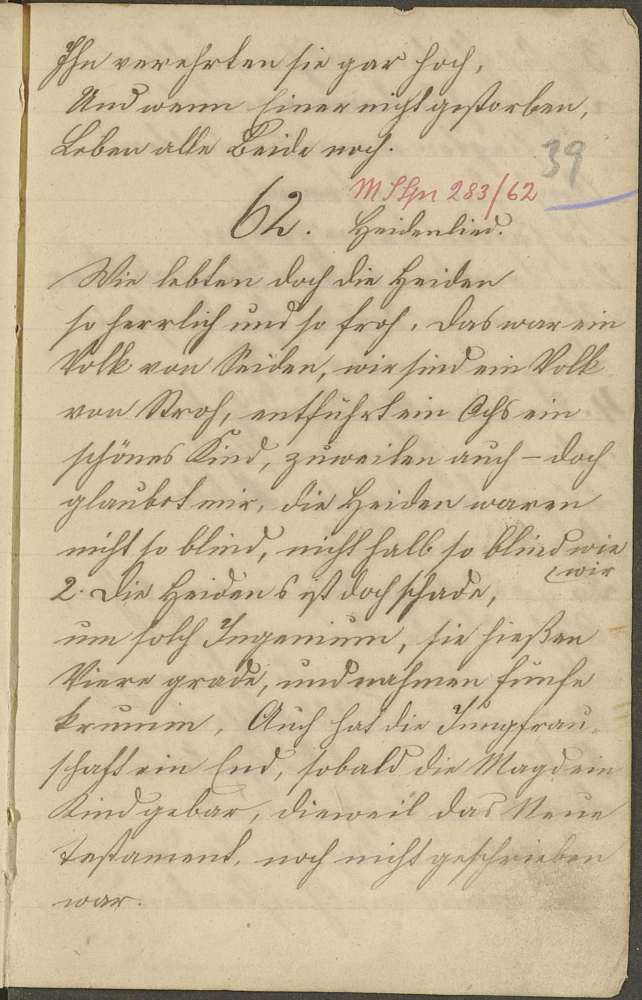 Ihn verehrten sie gar hoch,
Und wenn Einer nicht gestorben,
Leben alle Beide noch.
39
MSHn 283/62
62. Heidenlied.
Wie lebten doch die Heiden
so herrlich und so froh, das war ein
Volk von Seiden, wir sind ein Volk
von Stroh, entführt ein Ochs ein
schönes Kind, zuweilen auch – doch
glaubet mir, die Heiden waren
nicht so blind, nicht halb so blind wie
wir
2. Die Heiden s ist doch schade,
um solch Ingenium, sie hießen
Viere grade, und nahmen fünfe
krumm. Auch hat die Jungfrau-
schaft ein End, sobald die Magd ein
Kind gebar, dieweil das Neue
Testament, noch nicht geschrieben
war.